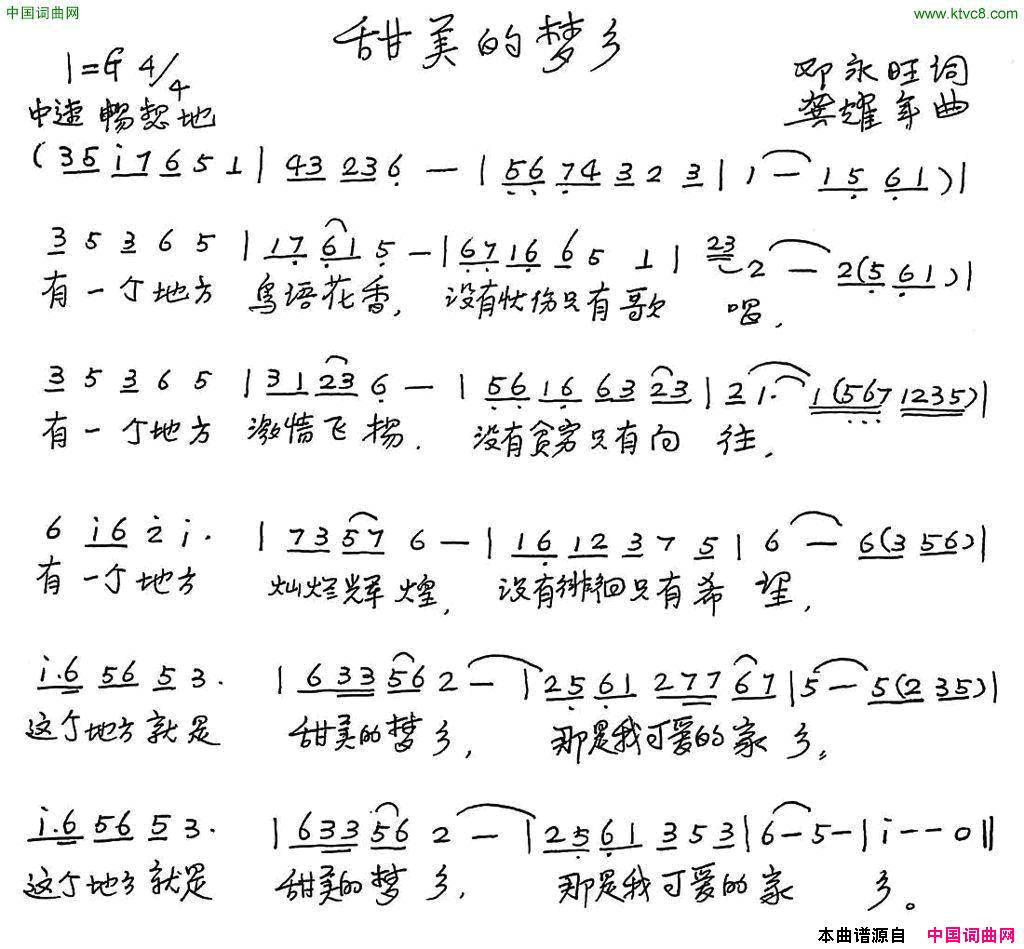 中国词曲网
www.ktvc8.com
甜美的梦乡
1=G 4/4
邓永旺词
中速 畅想地
龚耀年曲
(3 5 i 7 6 5 1 | 4 3 2 3 6 — | 5 6 7 4 3 2 3 | 1 — 1 5 6 1) |
3 5 3 6 5 | 1 7 6 1 5 — | 6 7 1 6 6 5 1 | 23 2 — 2(5 6 1) |
有一个地方 鸟语花香, 没有忧伤只有歌 唱,
3 5 3 6 5 | 3 1 2 3 6 — | 5 6 1 6 6 3 2 3 | 2 1· 1(5 6 7 1 2 3 5) |
有一个地方 激情飞扬. 没有贫穷只有向 往,
6 i 6 2 i· | 7 3 5 7 6 — | 1 6 1 2 3 7 5 | 6 — 6(3 5 6) |
有一个地方 灿烂辉煌, 没有徘徊只有希 望,
i·6 5 6 5 3· | 6 3 3 5 6 2 — | 2 5 6 1 2 7 7 6 7 | 5 — 5(2 3 5) |
这个地方就是 甜美的梦乡, 那是我可爱的家 乡。
i·6 5 6 5 3· | 6 3 3 5 6 2 — | 2 5 6 1 3 5 3 | 6 — 5 — | i — — 0 ‖
这个地方就是 甜美的梦乡, 那是我可爱的家 乡。
本曲谱源自 中国词曲网